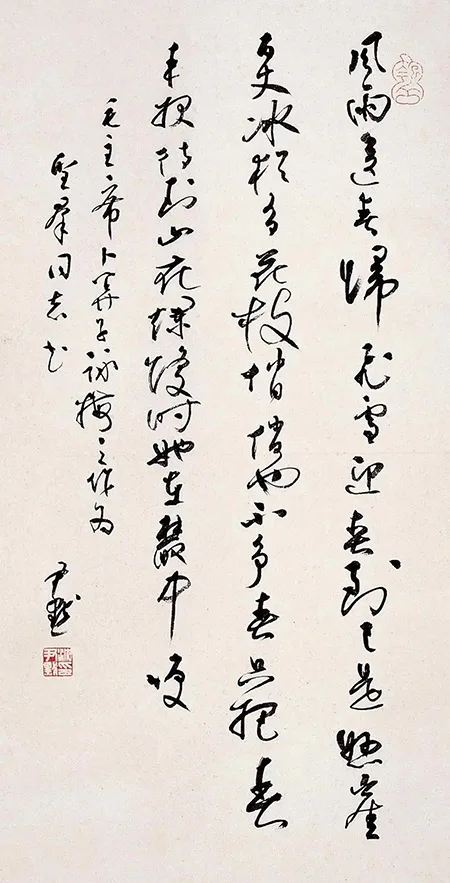 風雨送春歸飛雪迎春到已是懸崖
百丈冰猶有花枝悄悄也不爭春只把春
来報待到山花爛熳時她在叢中咲
毛主席卜算子詠梅之作為
聖羣同志書
尹默